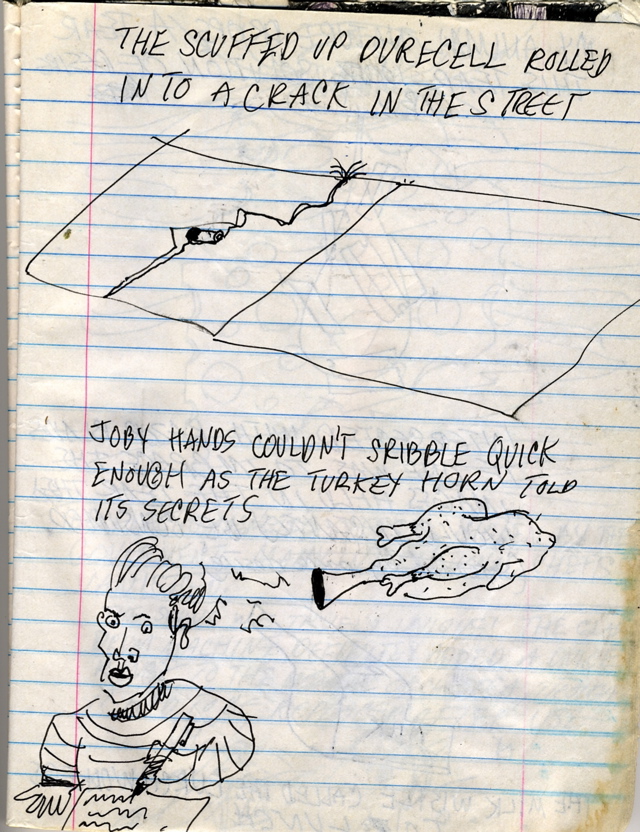 THE SCUFFED UP DURECELL ROLLED
INTO A CRACK IN THE STREET
JOBY HANDS COULDN'T SRIBBLE QUICK
ENOUGH AS THE TURKEY HORN TOLD
ITS SECRETS